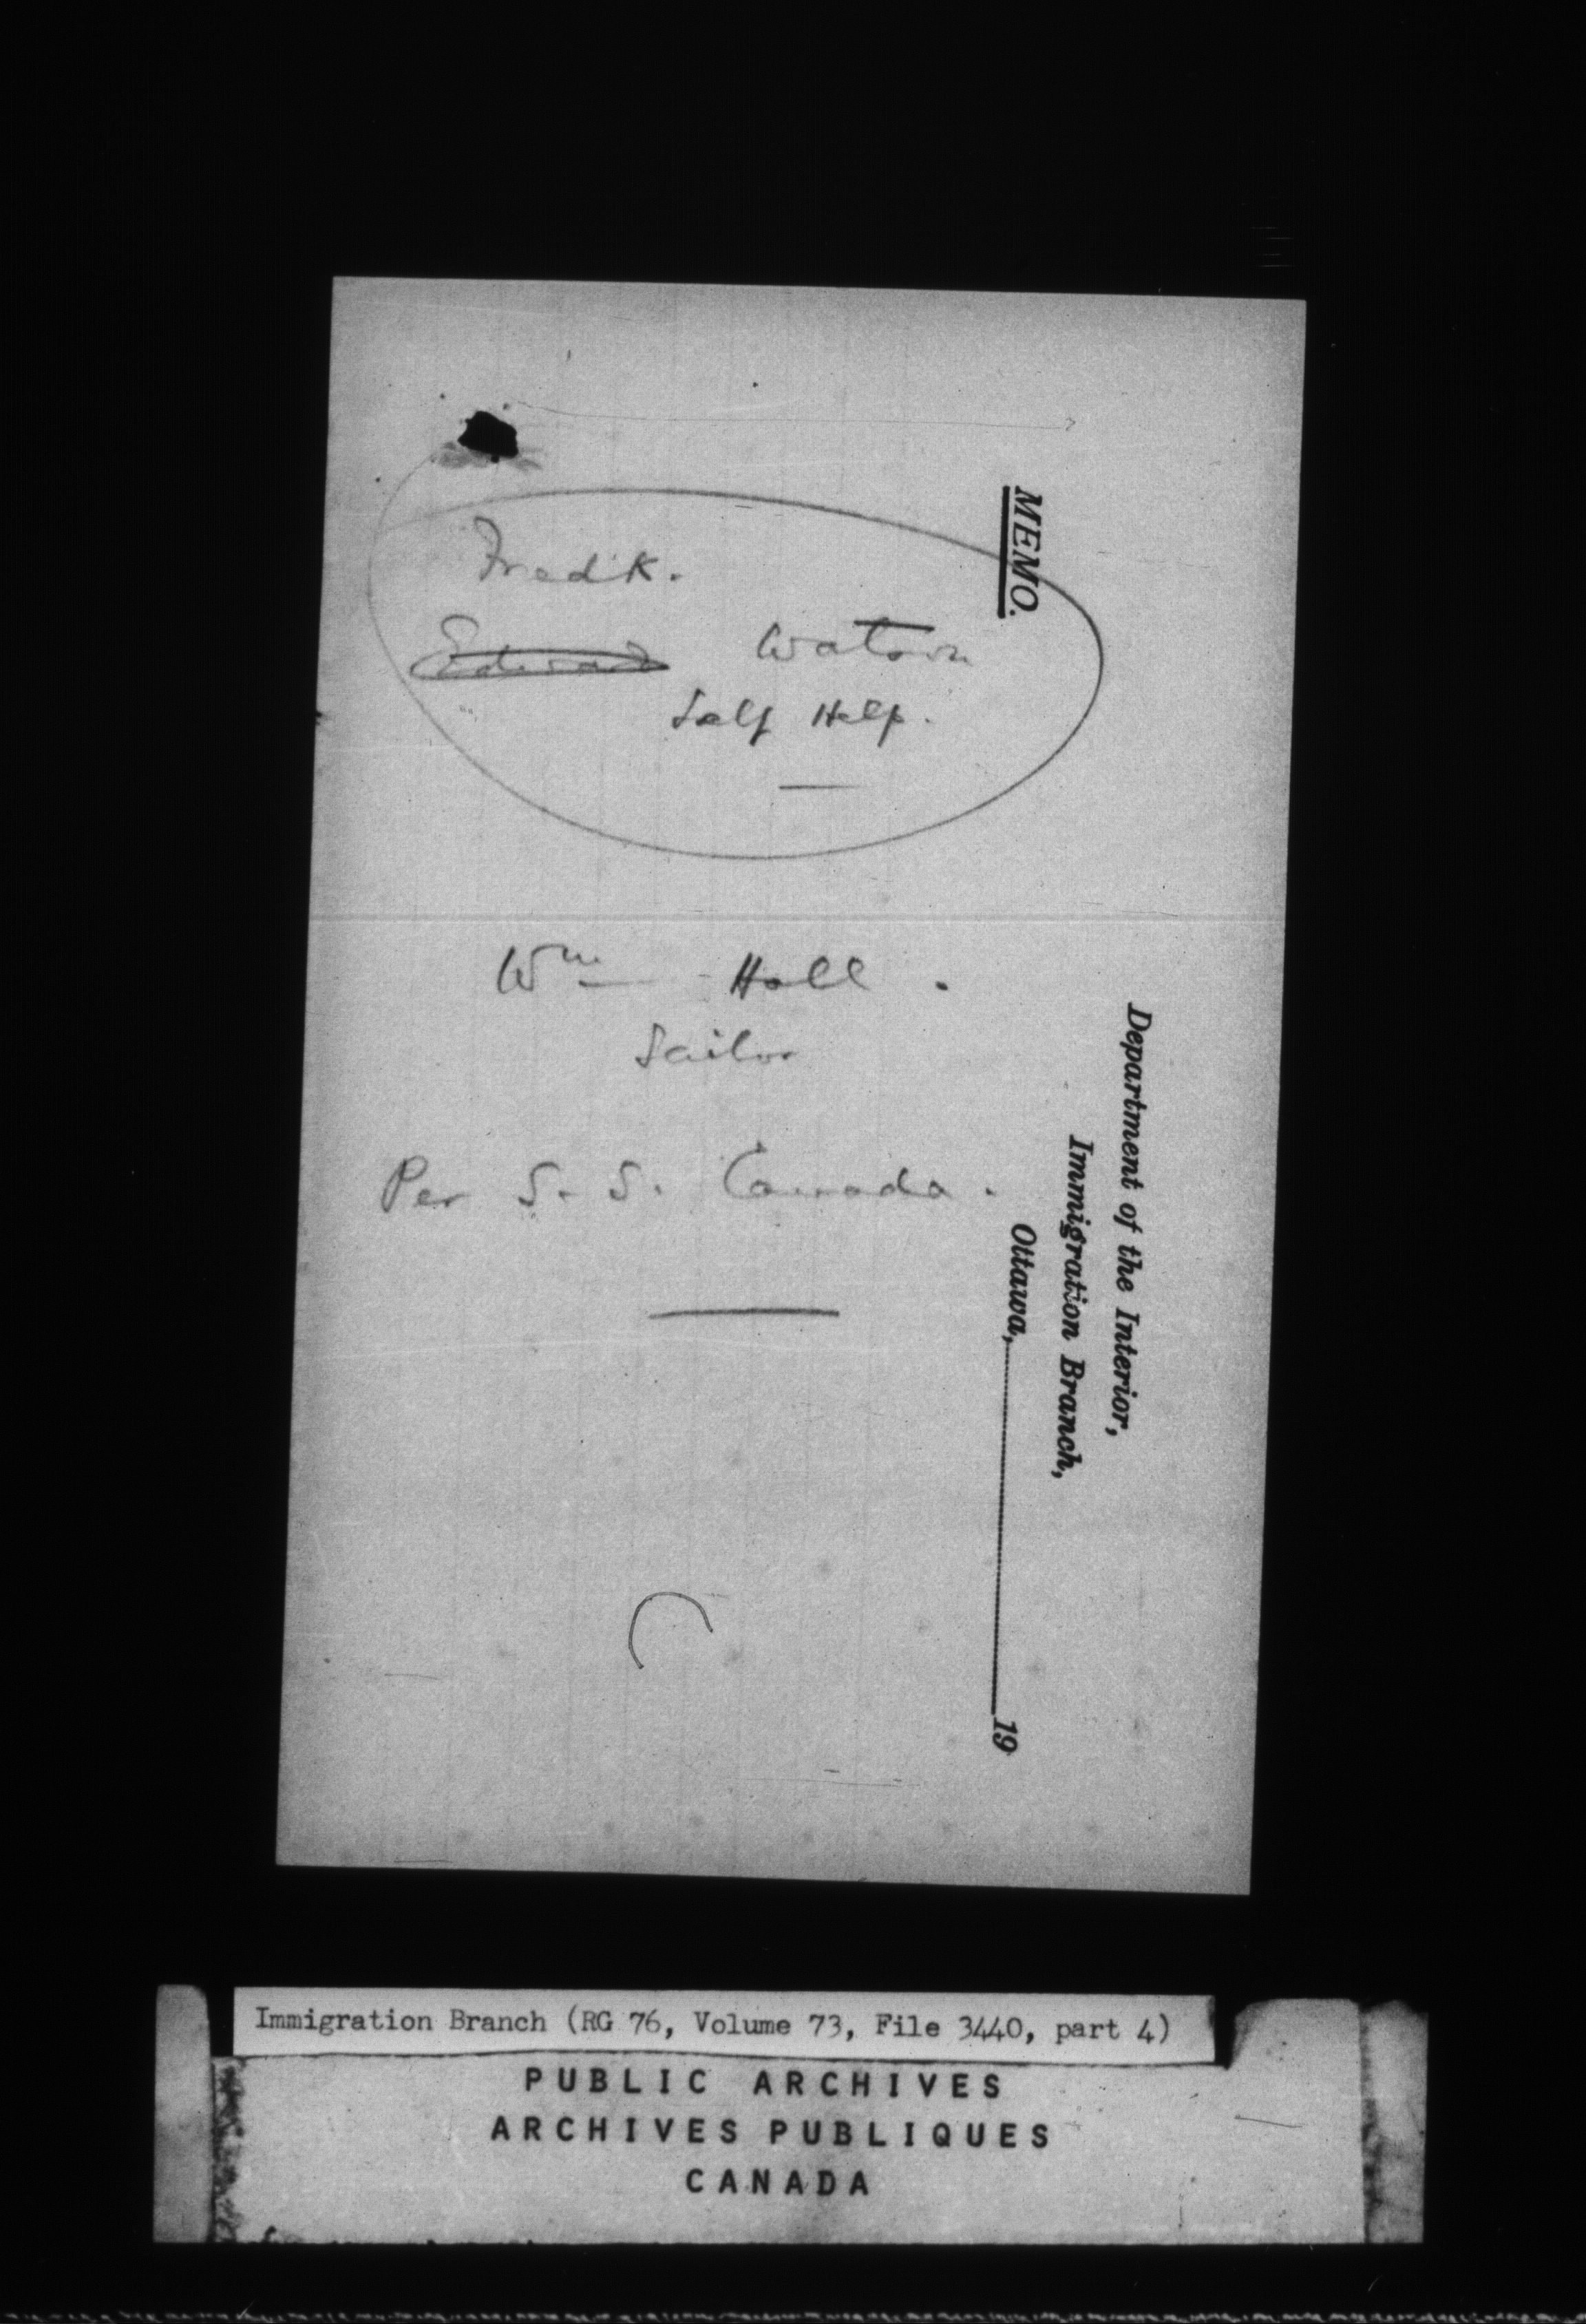 MEMO.
Department of the Interior,
Immigration Branch,
Ottawa, 19
Fredk.
Edward Watson
Self Help.
Wm Hall.
Sailor
Per S. S. Canada.
Immigration Branch (RG 76, Volume 73, File 3440, part 4)
PUBLIC ARCHIVES
ARCHIVES PUBLIQUES
CANADA